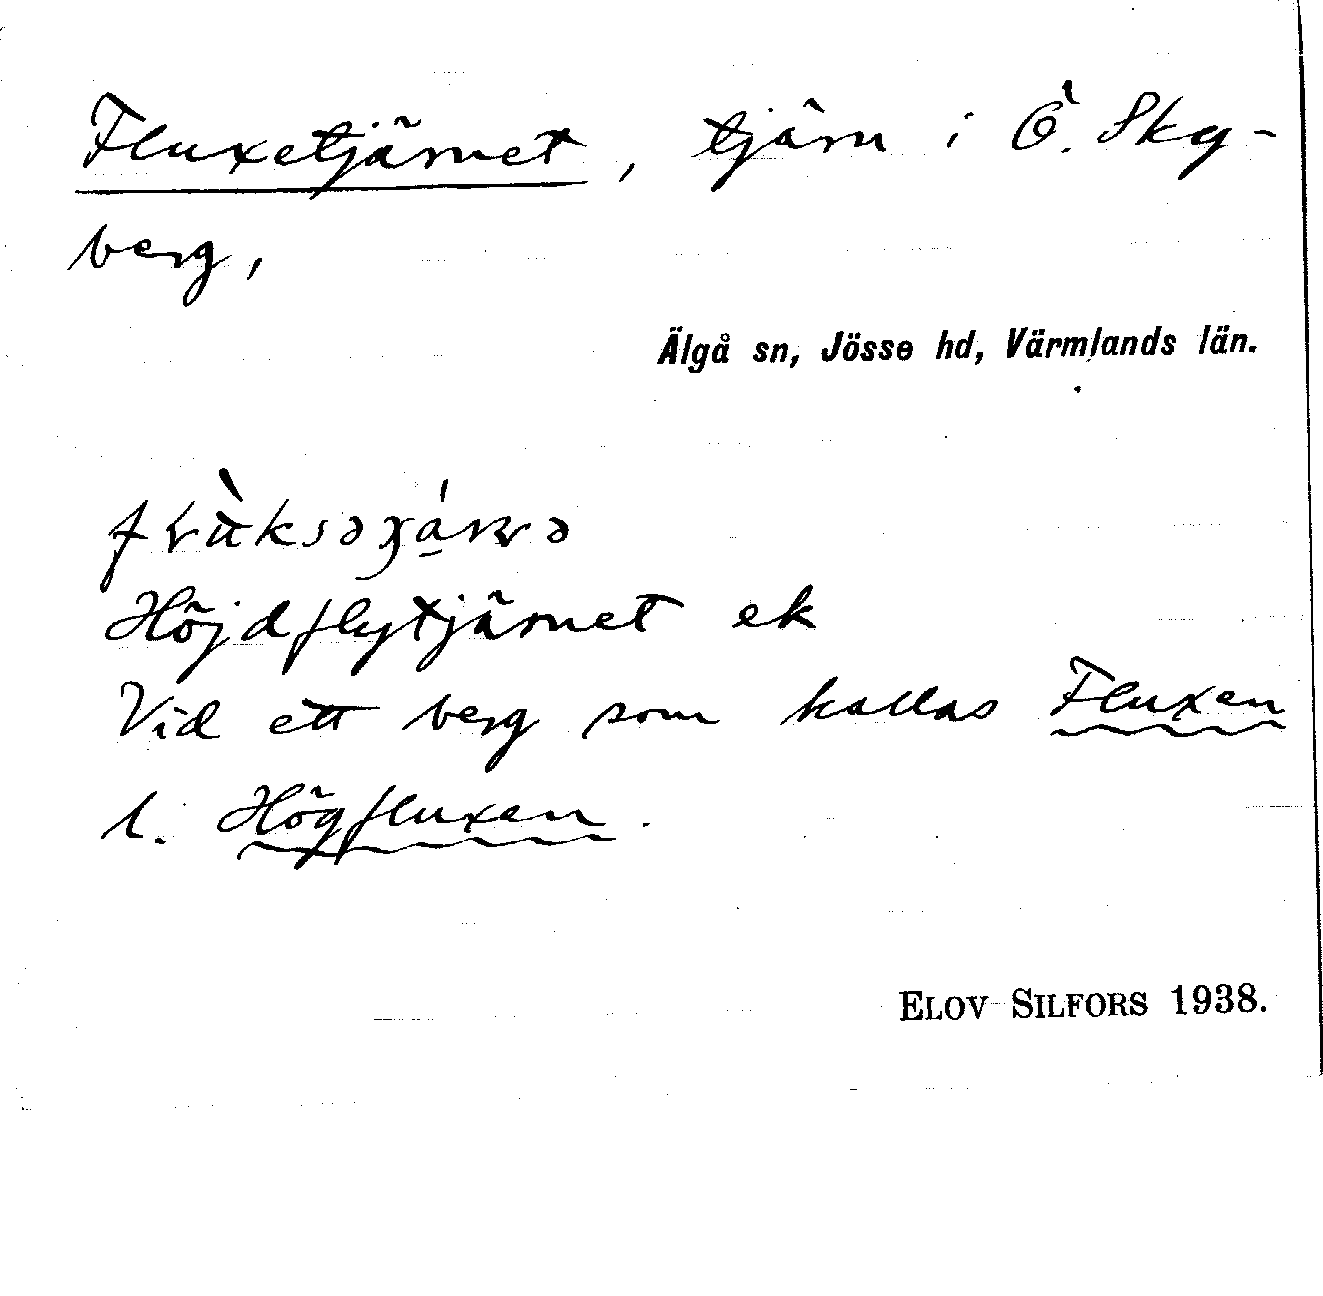 Fluxetjärnet, tjärn i Ö. Sky-
berg,
Älgå sn, Jösse hd, Värmlands län.
Höjdflytjärnet ek
Vid ett berg som kallas Fluxen
l. Högfluxen.
ELOV SILFORS 1938.